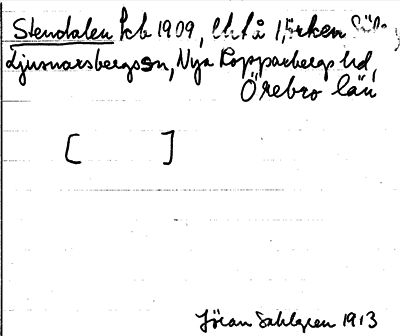 Stendalen kb 1909,
Ljusnarsbergs sn, Nya Kopparbergs hd,
Örebro län
[ ]
Jöran Sahlgren 1913